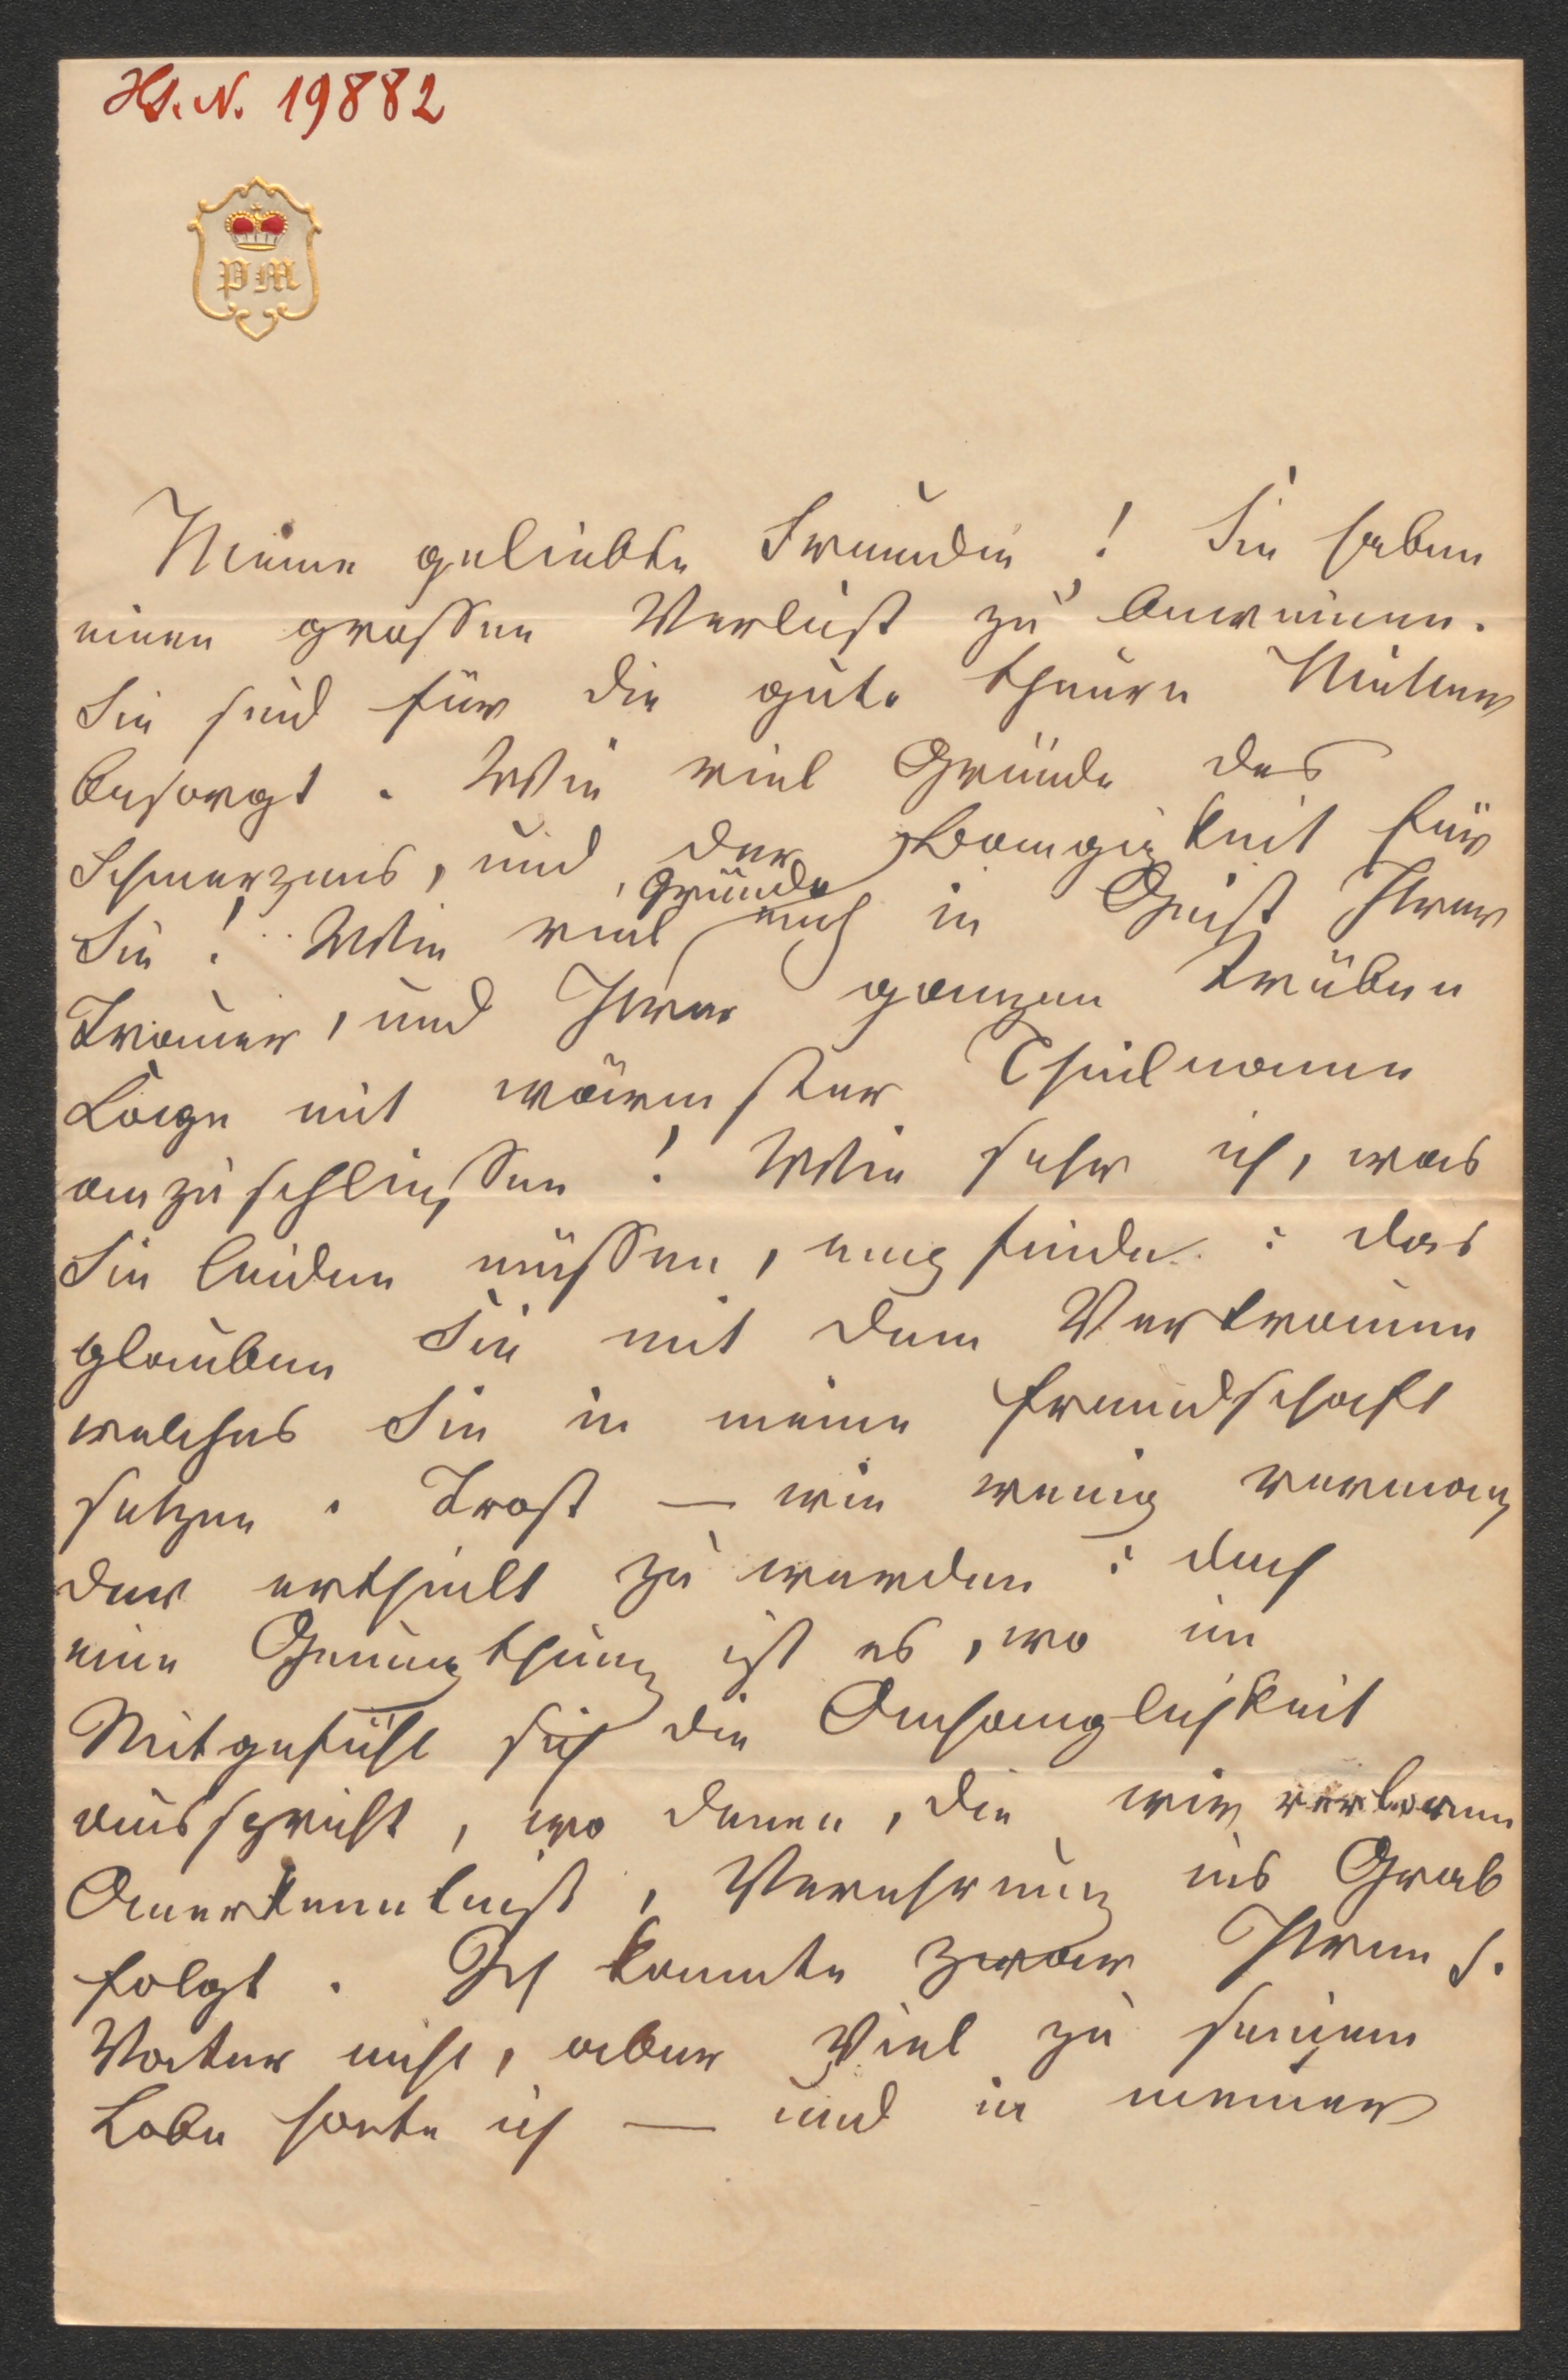 H.I.N. 19882
PM
Meine geliebte Freundin! Sie haben
einen grossen Verlust zu beweinen.
Sie sind für die gute theure Mutter
besorgt. Wie viel Gründe des
Schmerzens, und der Bangigkeit für
Sie! Wie viel Gründe mich in Geist Ihrer
Trauer, und Ihrer ganzen trüben
Lage mit wärmster Theilname
anzuschliessen! Wie sehr ich, was
Sie leiden müssen, empfinde: das
glauben Sie mit dem Vertrauen
welches Sie in meine Freundschaft
setzen. Trost — wie wenig vermag
der ertheilt zu werden: doch
eine Genugthung ist es, wo im
Mitgefühl sich die Anhänglichkeit
ausspricht, wo denen, die wir verloren
Anerkenntniß, Verehrung ins Grab
folgt. Ich kannte zwar Ihren s.
Vater nicht, aber Viel zu seinem
Lobe hörte ich — und in meiner